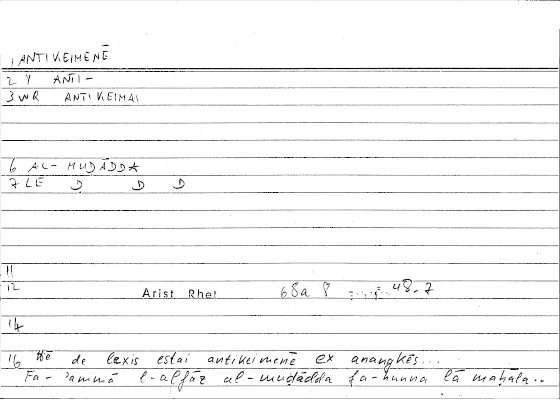 1 ANTIKEIMENĒ
2 Y ANTI-
3 WR ANTIKEIMAI
6 AL- MUḌĀDDA
7 LE Ḍ D D
11
12 Arist Rhet 68a 8 48.7
14
16 Hē de lexis estai antikeimenē ex anangkēs...
Fa-ʾammā l-alfāẓ al-muḍādda fa-hunna lā maḥāla..